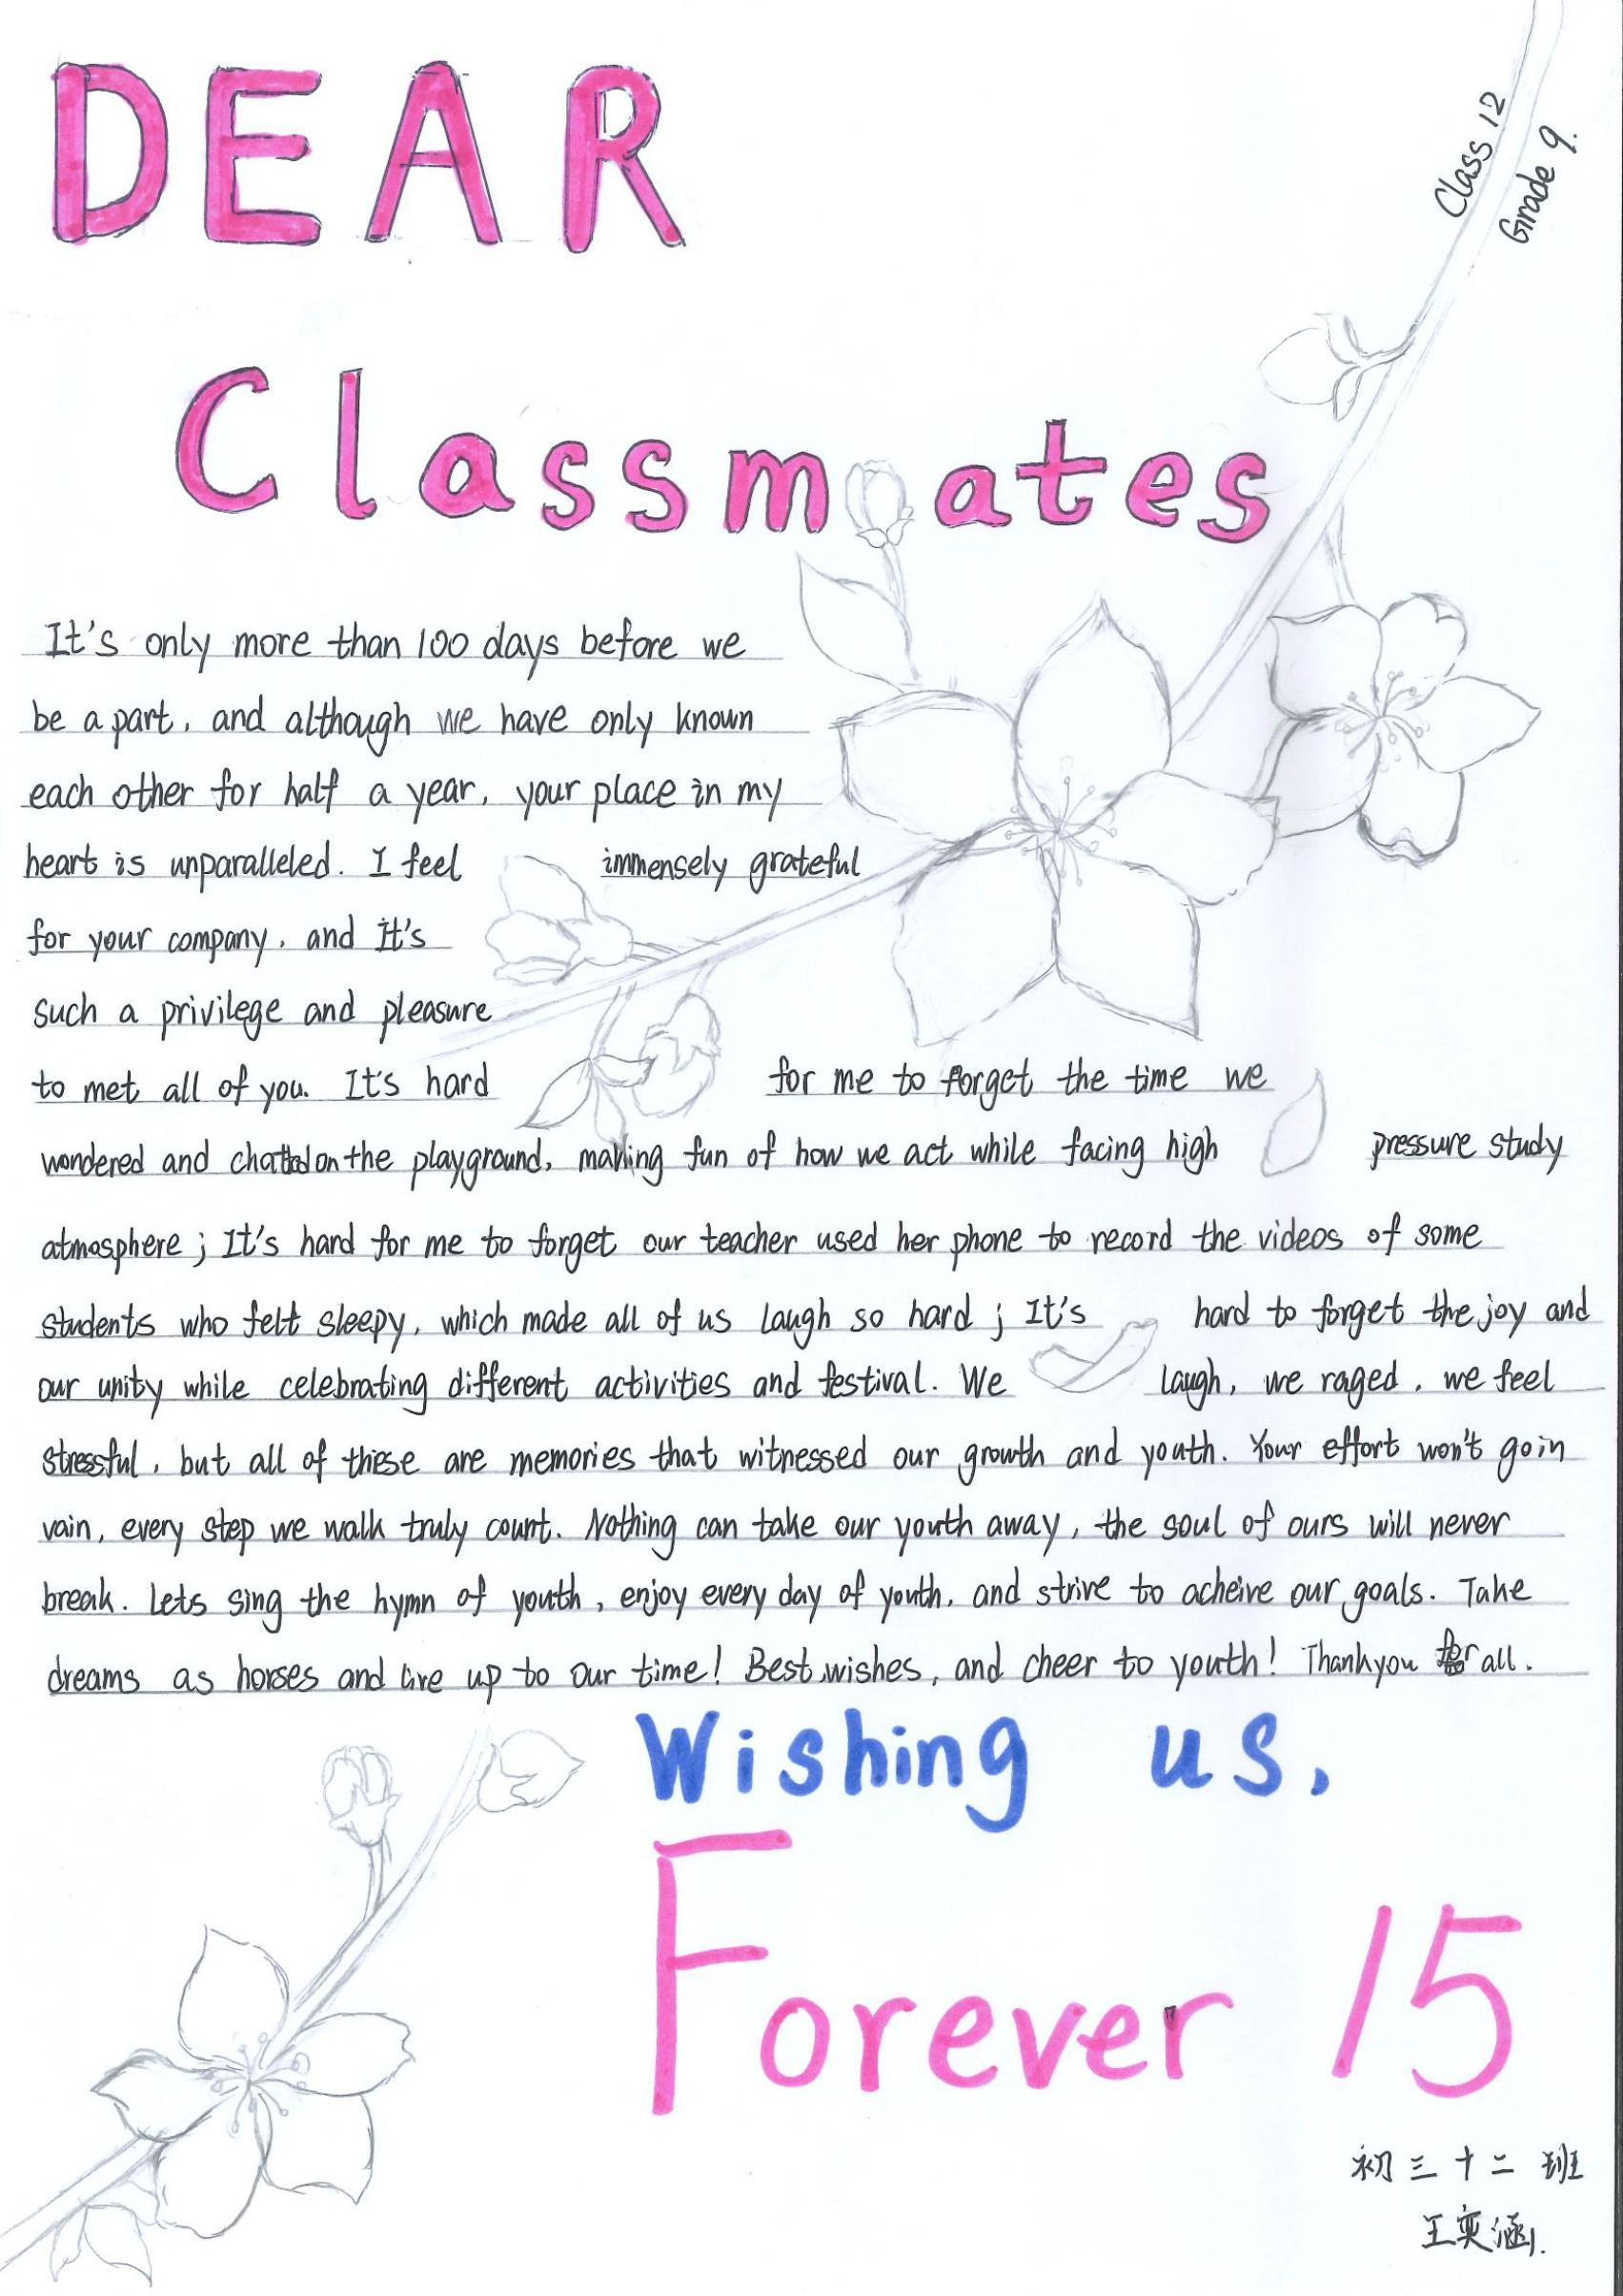 DEAR
Class 12
Grade 9.
Classmates
It's only more than 100 days before we
be a part, and although we have only known
each other for half a year, your place in my
heart is unparalleled. I feel immensely grateful
for your company, and it's
such a privilege and pleasure
to met all of you. It's hard for me to forget the time we
wondered and chatted on the playground, making fun of how we act while facing high pressure study
atmosphere; It's hard for me to forget our teacher used her phone to record the videos of some
students who felt sleepy, which made all of us laugh so hard; It's hard to forget the joy and
our unity while celebrating different activities and festival. We laugh, we raged, we feel
stressful, but all of these are memories that witnessed our growth and youth. Your effort won't go in
vain, every step we walk truly count. Nothing can take our youth away, the soul of ours will never
break. Lets sing the hymn of youth, enjoy every day of youth, and strive to acheive our goals. Take
dreams as horses and live up to our time! Best wishes, and cheer to youth! Thank you for all.
Wishing us,
Forever 15
初三十二班
王奕涵.